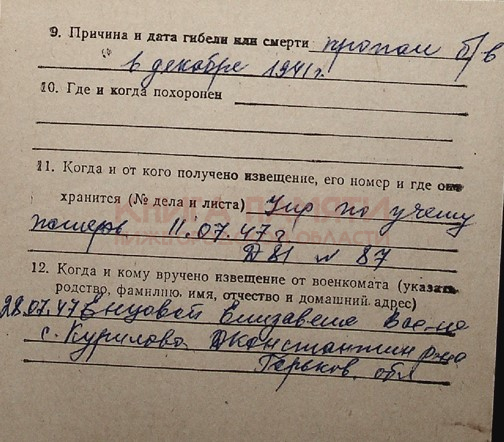 9. Причина и дата гибели или смерти пропал б/в
в декабре 1941г.
10. Где и когда похоронен
11. Когда и от кого получено извещение, его номер и где оно
хранится (№ дела и листа) Упр по учету
КНИГА ПАМЯТИ
потерь 11.07.47г.
НИЖЕГОРОДСКОЙ ОБЛАСТИ
Д 81 л 87
12. Когда и кому вручено извещение от военкомата (указать
родство, фамилию, имя, отчество и домашний адрес)
28.07.47 Елизавете
с. Курилово Дконстантин р-на
Горьков. обл